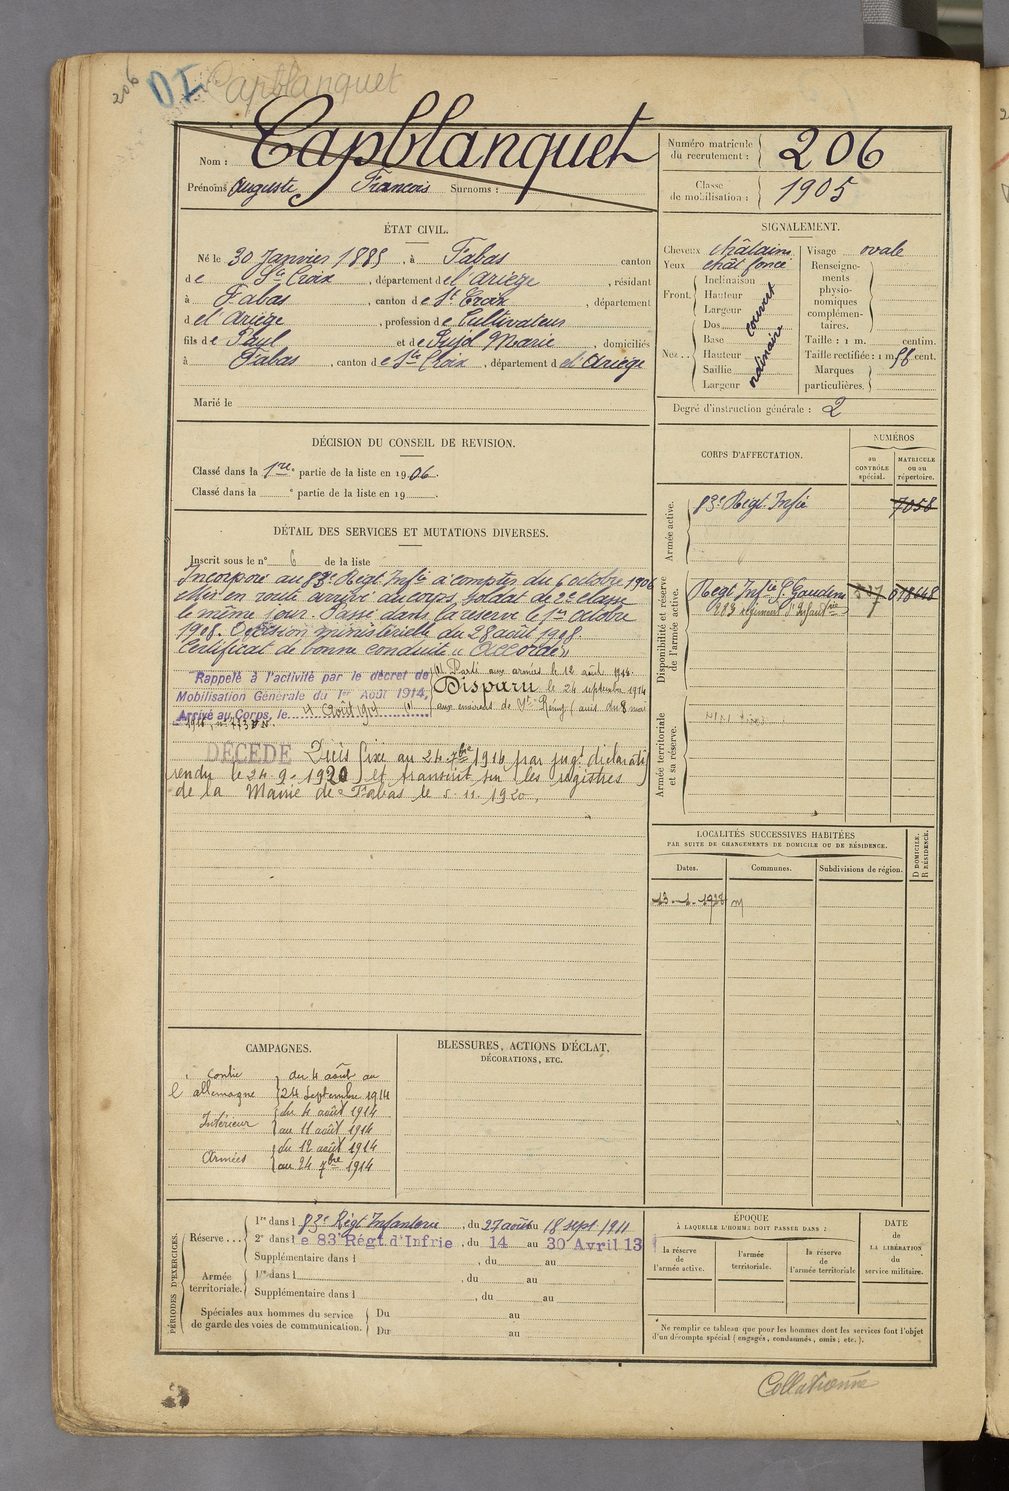 206
Capblanquet
Nom : Capblanquet
Prénoms Auguste François Surnoms :
Numéro matricule du recrutement : 206
Classe de mobilisation : 1905
ÉTAT CIVIL.
Né le 30 Janvier 1885, à Fabas canton
de Ste Croix, département de l'Ariège, résidant
à Fabas, canton de Ste Croix, département
d el Ariège, profession de Cultivateur
fils de Paul et de Pujol Marie, domiciliés
à Fabas, canton de Ste Croix, département d el Ariège
Marié le
SIGNALEMENT.
Cheveux châtains
Yeux chât foncé
Front. Inclinaison
Hauteur
Largeur
couvert
Nez... Dos
Base
Hauteur
Saillie
Largeur
ordinaire
Visage ovale
Renseignements physionomiques complémentaires.
Taille : 1 m. centim.
Taille rectifiée : 1 m 58 cent.
Marques particulières.
Degré d'instruction générale : 2
DÉCISION DU CONSEIL DE REVISION.
Classé dans la 1re partie de la liste en 1906.
Classé dans la ° partie de la liste en 19 .
DÉTAIL DES SERVICES ET MUTATIONS DIVERSES.
Inscrit sous le n° 6 de la liste
Incorporé au 83e Régt Infie à compter du 6 octobre 1906
Mis en route arrivé au corps, soldat de 2e classe
le même jour. Passé dans la réserve le 1er octobre
1908. Décision ministérielle du 28 août 1908.
Certificat de bonne conduite « Accordé »
Rappelé à l'activité par le décret de
Mobilisation Générale du 1er Août 1914,
Arrivé au Corps, le 4 Août 1914 (1)
(1) Parti aux armées le 12 août 1914.
Disparu le 24 septembre 1914
aux environs de St Remy (avis du 8 mai
1916, n° 773
DÉCÉDÉ Décès fixé au 24 7bre 1914 par jugt déclaratif
rendu le 24.9.1920 et transcrit sur les registres
de la Mairie de Fabas le 5.11.1920.
CORPS D'AFFECTATION.
NUMÉROS
au CONTRÔLE spécial.
MATRICULE ou au répertoire.
Armée active.
83e Régt Infie 7058
Disponibilité et réserve de l'armée active.
Regt Infie St Gaudens 018648
(83 régiment d'Infanterie)
Armée territoriale et sa réserve.
LOCALITÉS SUCCESSIVES HABITÉES
PAR SUITE DE CHANGEMENTS DE DOMICILE OU DE RÉSIDENCE.
Dates.
Communes.
Subdivisions de région.
D DOMICILE.
R RÉSIDENCE.
CAMPAGNES.
contre l'allemagne du 4 août au
24 Septembre 1914
Intérieur du 4 août 1914
au 11 août 1914
Armées du 12 août 1914
au 24 7bre 1914
BLESSURES, ACTIONS D'ÉCLAT,
DÉCORATIONS, ETC.
PÉRIODES D'EXERCICES.
Réserve... 1re dans l 83e Régt Infanterie, du 27 août au 18 sept 1911
2e dans l e 83e Régt. d'Infrie, du 14 au 30 Avril 13
Supplémentaire dans l , du au
Armée territoriale. 1re dans l , du au
Supplémentaire dans l , du au
Spéciales aux hommes du service de garde des voies de communication. Du au
Du au
ÉPOQUE
À LAQUELLE L'HOMME DOIT PASSER DANS :
la réserve de l'armée active.
l'armée territoriale.
la réserve de l'armée territoriale
DATE
de
LA LIBÉRATION
du
service militaire.
Ne remplir ce tableau que pour les hommes dont les services font l'objet
d'un décompte spécial (engagés, condamnés, omis ; etc.).
Collationné